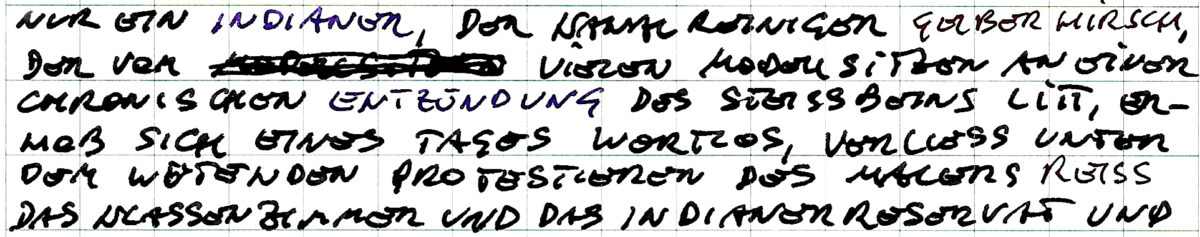 NUR EIN INDIANER, DER KANALREINIGER GELBER HIRSCH,
DER VOM VIELEN MODELLSITZEN AN EINER
CHRONISCHEN ENTZÜNDUNG DES STEISSBEINS LITT, ER-
HOB SICH EINES TAGES WORTLOS, VERLIESS UNTER
DEM WÜTENDEN PROTESTIEREN DES MALERS REISS
DAS KLASSENZIMMER UND DAS INDIANERRESERVAT UND